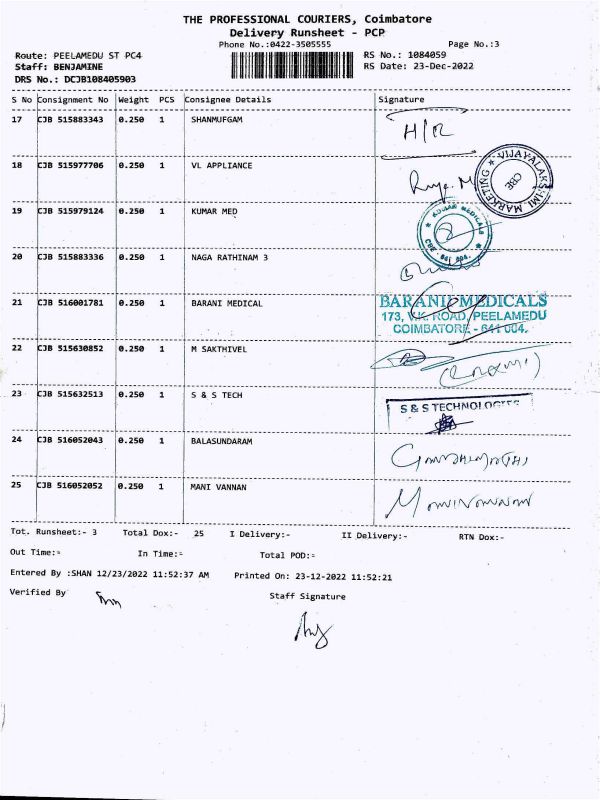 THE PROFESSIONAL COURIERS, Coimbatore
Delivery Runsheet - PCP
Phone No.:0422-3505555 Page No.:3
Route: PEELAMEDU ST PC4 RS No.: 1084059
Staff: BENJAMINE RS Date: 23-Dec-2022
DRS No.: DCJB108405903
S No Consignment No Weight PCS Consignee Details Signature
17 CJB 515883343 0.250 1 SHANMUFGAM H/R
18 CJB 515977706 0.250 1 VL APPLIANCE
VIJAYALAKSHMI MARKETING CBE
19 CJB 515979124 0.250 1 KUMAR MED
KUMAR MEDICALS CBE - 641 004.
20 CJB 515883336 0.250 1 NAGA RATHINAM 3
21 CJB 516001781 0.250 1 BARANI MEDICAL BARANI MEDICALS
173, V.K. ROAD, PEELAMEDU
COIMBATORE - 641 004.
22 CJB 515630852 0.250 1 M SAKTHIVEL
23 CJB 515632513 0.250 1 S & S TECH S & S TECHNOLOGIES
24 CJB 516052043 0.250 1 BALASUNDARAM
25 CJB 516052052 0.250 1 MANI VANNAN
Tot. Runsheet:- 3 Total Dox:- 25 I Delivery:- II Delivery:- RTN Dox:-
Out Time:- In Time:- Total POD:-
Entered By :SHAN 12/23/2022 11:52:37 AM Printed On: 23-12-2022 11:52:21
Verified By Staff Signature